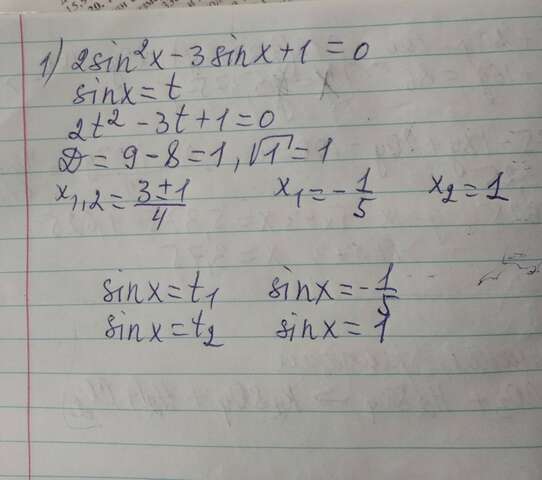 1) 2sin²x - 3sinx + 1 = 0
sinx = t
2t² - 3t + 1 = 0
D = 9 - 8 = 1, √1 = 1
x₁,₂ = (3±1)/4 x₁ = -1/5 x₂ = 1
sinx = t₁ sinx = -1/5
sinx = t₂ sinx = 1